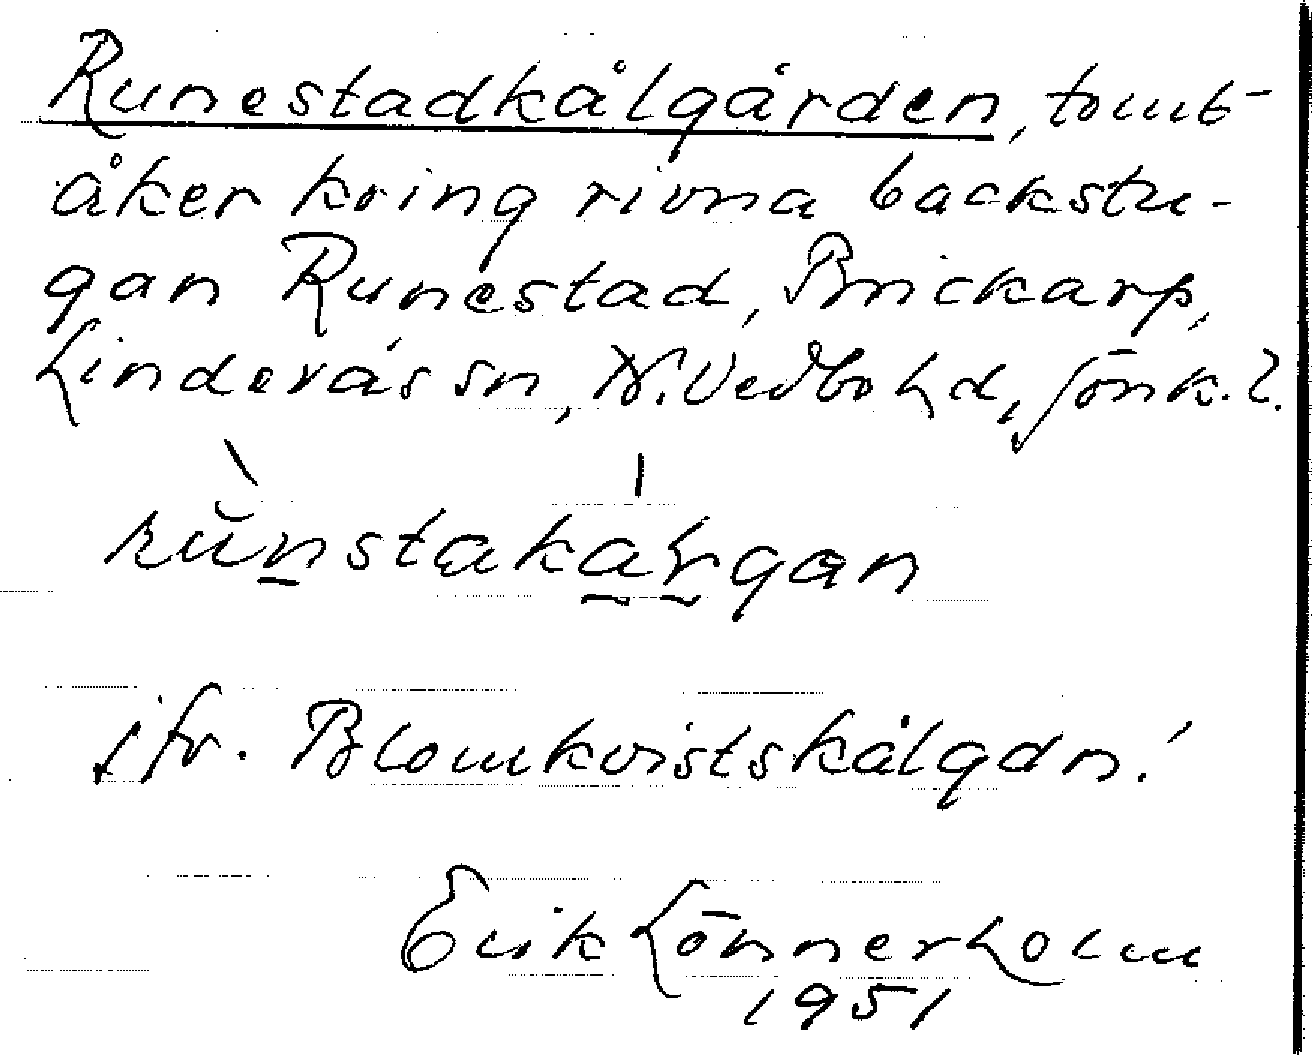 Runestadkålgården, tomt-
åker kring rivna backstu-
gan Runestad, Brickarp,
Linderås sn, N. Vedbo hd, Jönk. l.
rŭnstakaꝛgan
jfr. Blomkvistskålgdn!
Erik Lönnerholm
1951